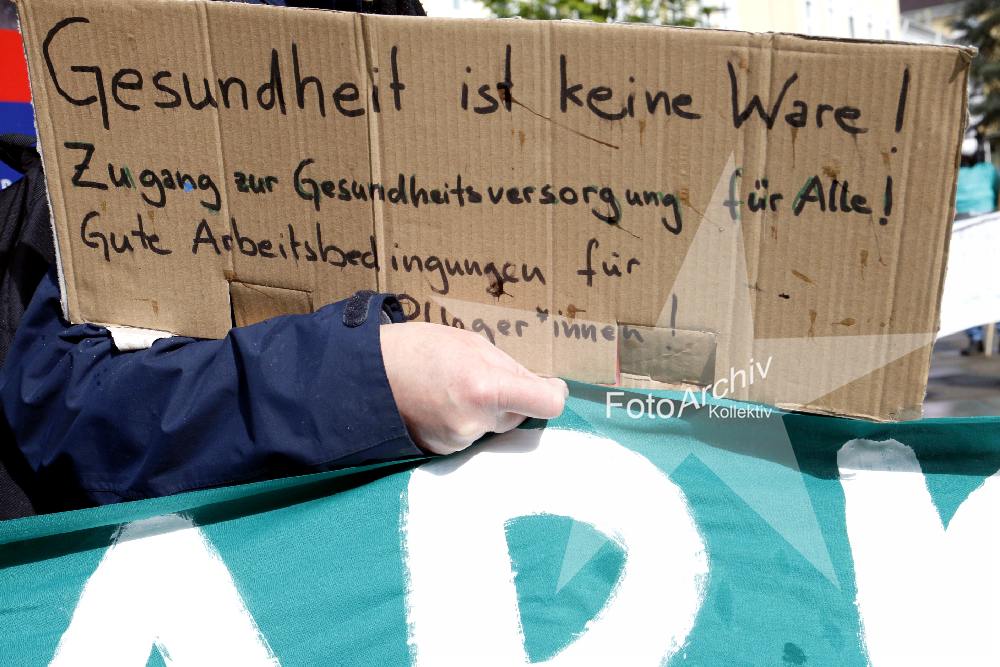 Gesundheit ist keine Ware!
Zugang zur Gesundheitsversorgung für Alle!
Gute Arbeitsbedingungen für
!
FotoArchiv
Kollektiv